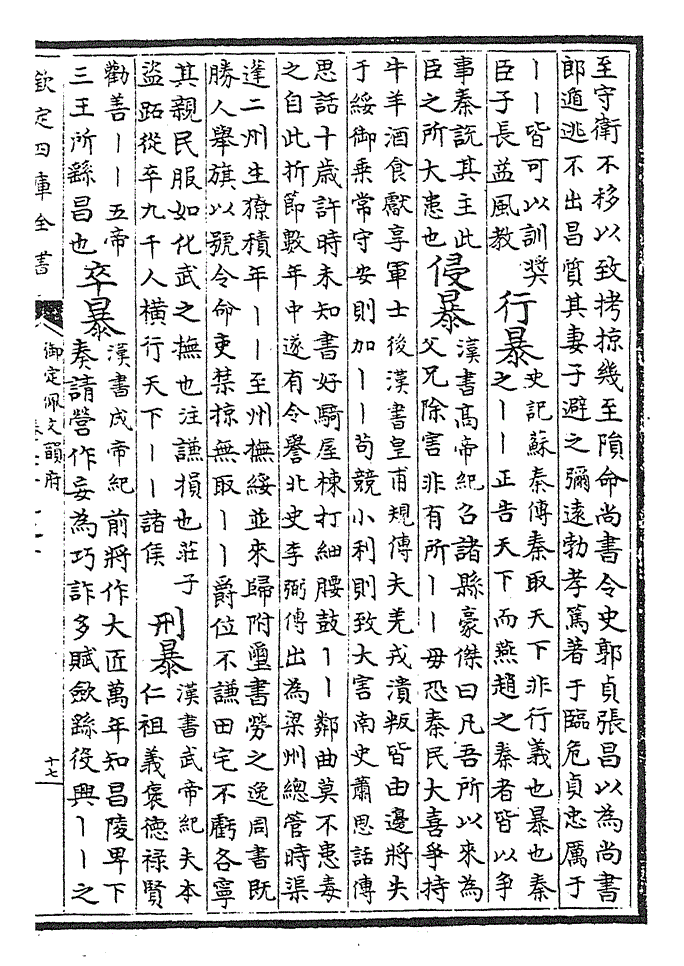 至守衛不移以致拷掠幾至隕命尚書令史郭貞張昌以為尚書
郎遁逃不出昌質其妻子避之彌遠勃孝篤著于臨危貞忠厲于
丨丨皆可以訓奬
臣子長益風教
行暴
史記蘇秦傳秦取天下非行義也暴也秦
之丨丨正告天下而燕趙之秦者皆以争
事秦說其主此
臣之所大患也
侵暴
漢書高帝紀召諸縣豪傑曰凡吾所以來為
父兄除害非有所丨丨毋恐秦民大喜爭持
牛羊酒食獻享軍士後漢書皇甫規傳夫羌戎潰叛皆由邊將失
于綏御乗常守安則加丨丨茍競小利則致大害南史蕭思話傳
思話十歳許時未知書好騎屋棟打細腰鼓丨丨鄰曲莫不患毒
之自此折節數年中遂有令譽北史李弼傳出為梁州總管時渠
逢二州生獠積年丨丨至州撫綏並來歸附璽書勞之逸周書既
勝人舉旗以號令命吏禁掠無取丨丨爵位不謙田宅不虧各寧
其親民服如化武之撫也注謙損也莊子
盜跖從卒九千人横行天下丨丨諸侯
刑暴
漢書武帝紀夫本
仁祖義褒德禄賢
勸善丨丨五帝
三王所繇昌也
卒暴
漢書成帝紀前將作大匠萬年知昌陵卑下
奏請營作妄為巧詐多賦斂繇役興丨丨之
欽定四庫全書
御定佩文韻府
十七